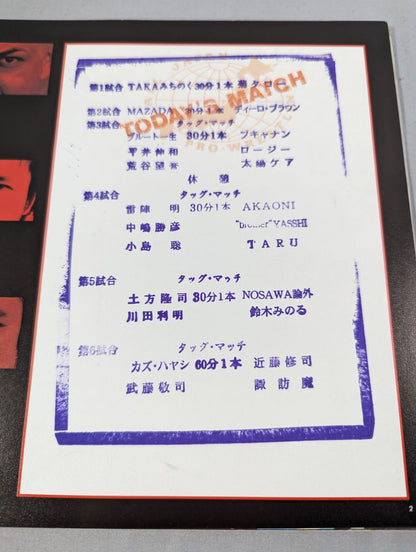 JAPAN
PRO-WRESTLING
TODAY'S MATCH
第1試合 TAKAみちのく 30分1本 菊タロー
第2試合 MAZADA 30分1本 ディーロ・ブラウン
第3試合 タッグ・マッチ
ブルート一生 30分1本 ブキャナン
平井伸和 ロージー
荒谷望誉 太陽ケア
休憩
第4試合 タッグ・マッチ
雷陣 明 30分1本 AKAONI
中嶋勝彦 "brother"YASSHI
小島 聡 TARU
第5試合 タッグ・マッチ
土方隆司 30分1本 NOSAWA論外
川田利明 鈴木みのる
第6試合 タッグ・マッチ
カズ・ハヤシ 60分1本 近藤修司
武藤敬司 諏訪魔
2